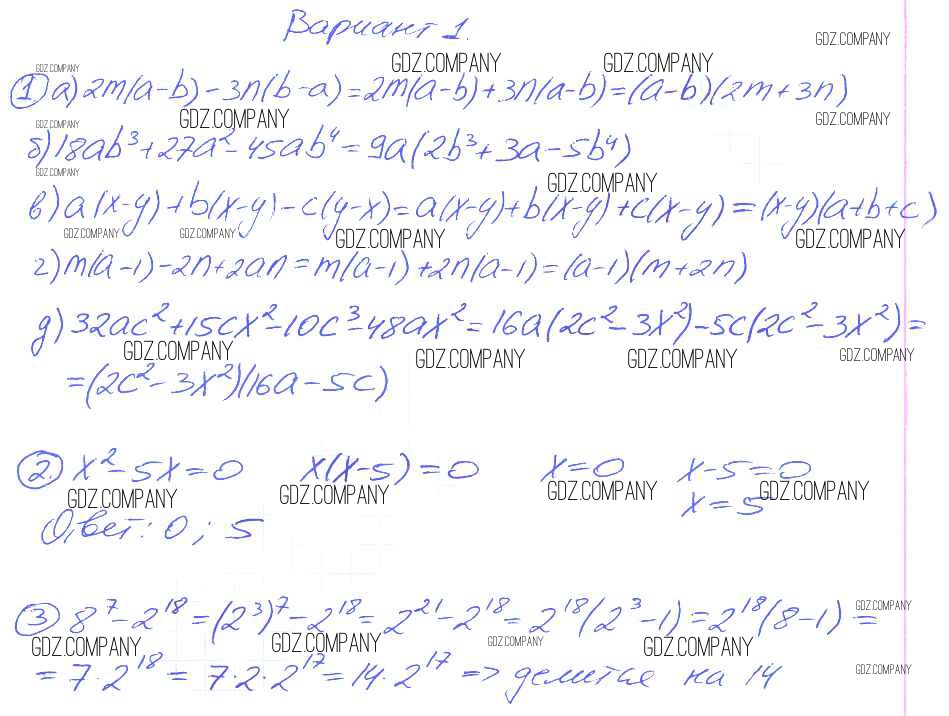 Вариант 1.
GDZ.COMPANY
GDZ.COMPANY GDZ.COMPANY GDZ.COMPANY
1 а) 2m(a-b) - 3n(b-a) = 2m(a-b) + 3n(a-b) = (a-b)(2m+3n)
GDZ.COMPANY GDZ.COMPANY GDZ.COMPANY
б) 18ab³ + 27a² - 45ab⁴ = 9a(2b³ + 3a - 5b⁴)
GDZ.COMPANY GDZ.COMPANY
в) a(x-y) + b(x-y) - c(y-x) = a(x-y) + b(x-y) + c(x-y) = (x-y)(a+b+c)
GDZ.COMPANY GDZ.COMPANY GDZ.COMPANY GDZ.COMPANY
г) m(a-1) - 2n + 2an = m(a-1) + 2n(a-1) = (a-1)(m+2n)
д) 32ac² + 15cx² - 10c³ - 48ax² = 16a(2c² - 3x²) - 5c(2c² - 3x²) =
GDZ.COMPANY GDZ.COMPANY GDZ.COMPANY GDZ.COMPANY
= (2c² - 3x²)(16a - 5c)
2. x² - 5x = 0 x(x-5) = 0 x = 0 x-5 = 0
GDZ.COMPANY GDZ.COMPANY GDZ.COMPANY GDZ.COMPANY
x = 5
Ответ: 0; 5
3 8⁷ - 2¹⁸ = (2³)⁷ - 2¹⁸ = 2²¹ - 2¹⁸ = 2¹⁸(2³ - 1) = 2¹⁸(8 - 1) =
GDZ.COMPANY
GDZ.COMPANY GDZ.COMPANY GDZ.COMPANY GDZ.COMPANY
= 7·2¹⁸ = 7·2·2¹⁷ = 14·2¹⁷ => делится на 14
GDZ.COMPANY